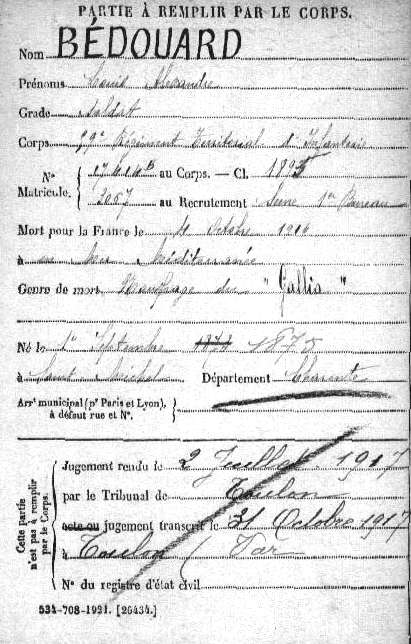 PARTIE À REMPLIR PAR LE CORPS.
Nom BÉDOUARD
Prénoms Louis Alexandre
Grade Soldat
Corps 29e Régiment Territorial d'Infanterie
No Matricule. { 17414B au Corps. — Cl. 1895
2067 au Recrutement Seine 1er Bureau
Mort pour la France le 4 Octobre 1916
à en Mer Méditerranée
Genre de mort Naufrage du "Gallia"
Né le 1er Septembre 1873 1875
à Saint Michel Département Charente
Arrt municipal (pr Paris et Lyon), à défaut rue et No. {
Cette partie n'est pas à remplir par le Corps.
Jugement rendu le 2 Juillet 1917
par le Tribunal de Toulon
acte ou jugement transcrit le 31 Octobre 1917
à Toulon (Var
No du registre d'état civil
534-708-1921. [26434.]